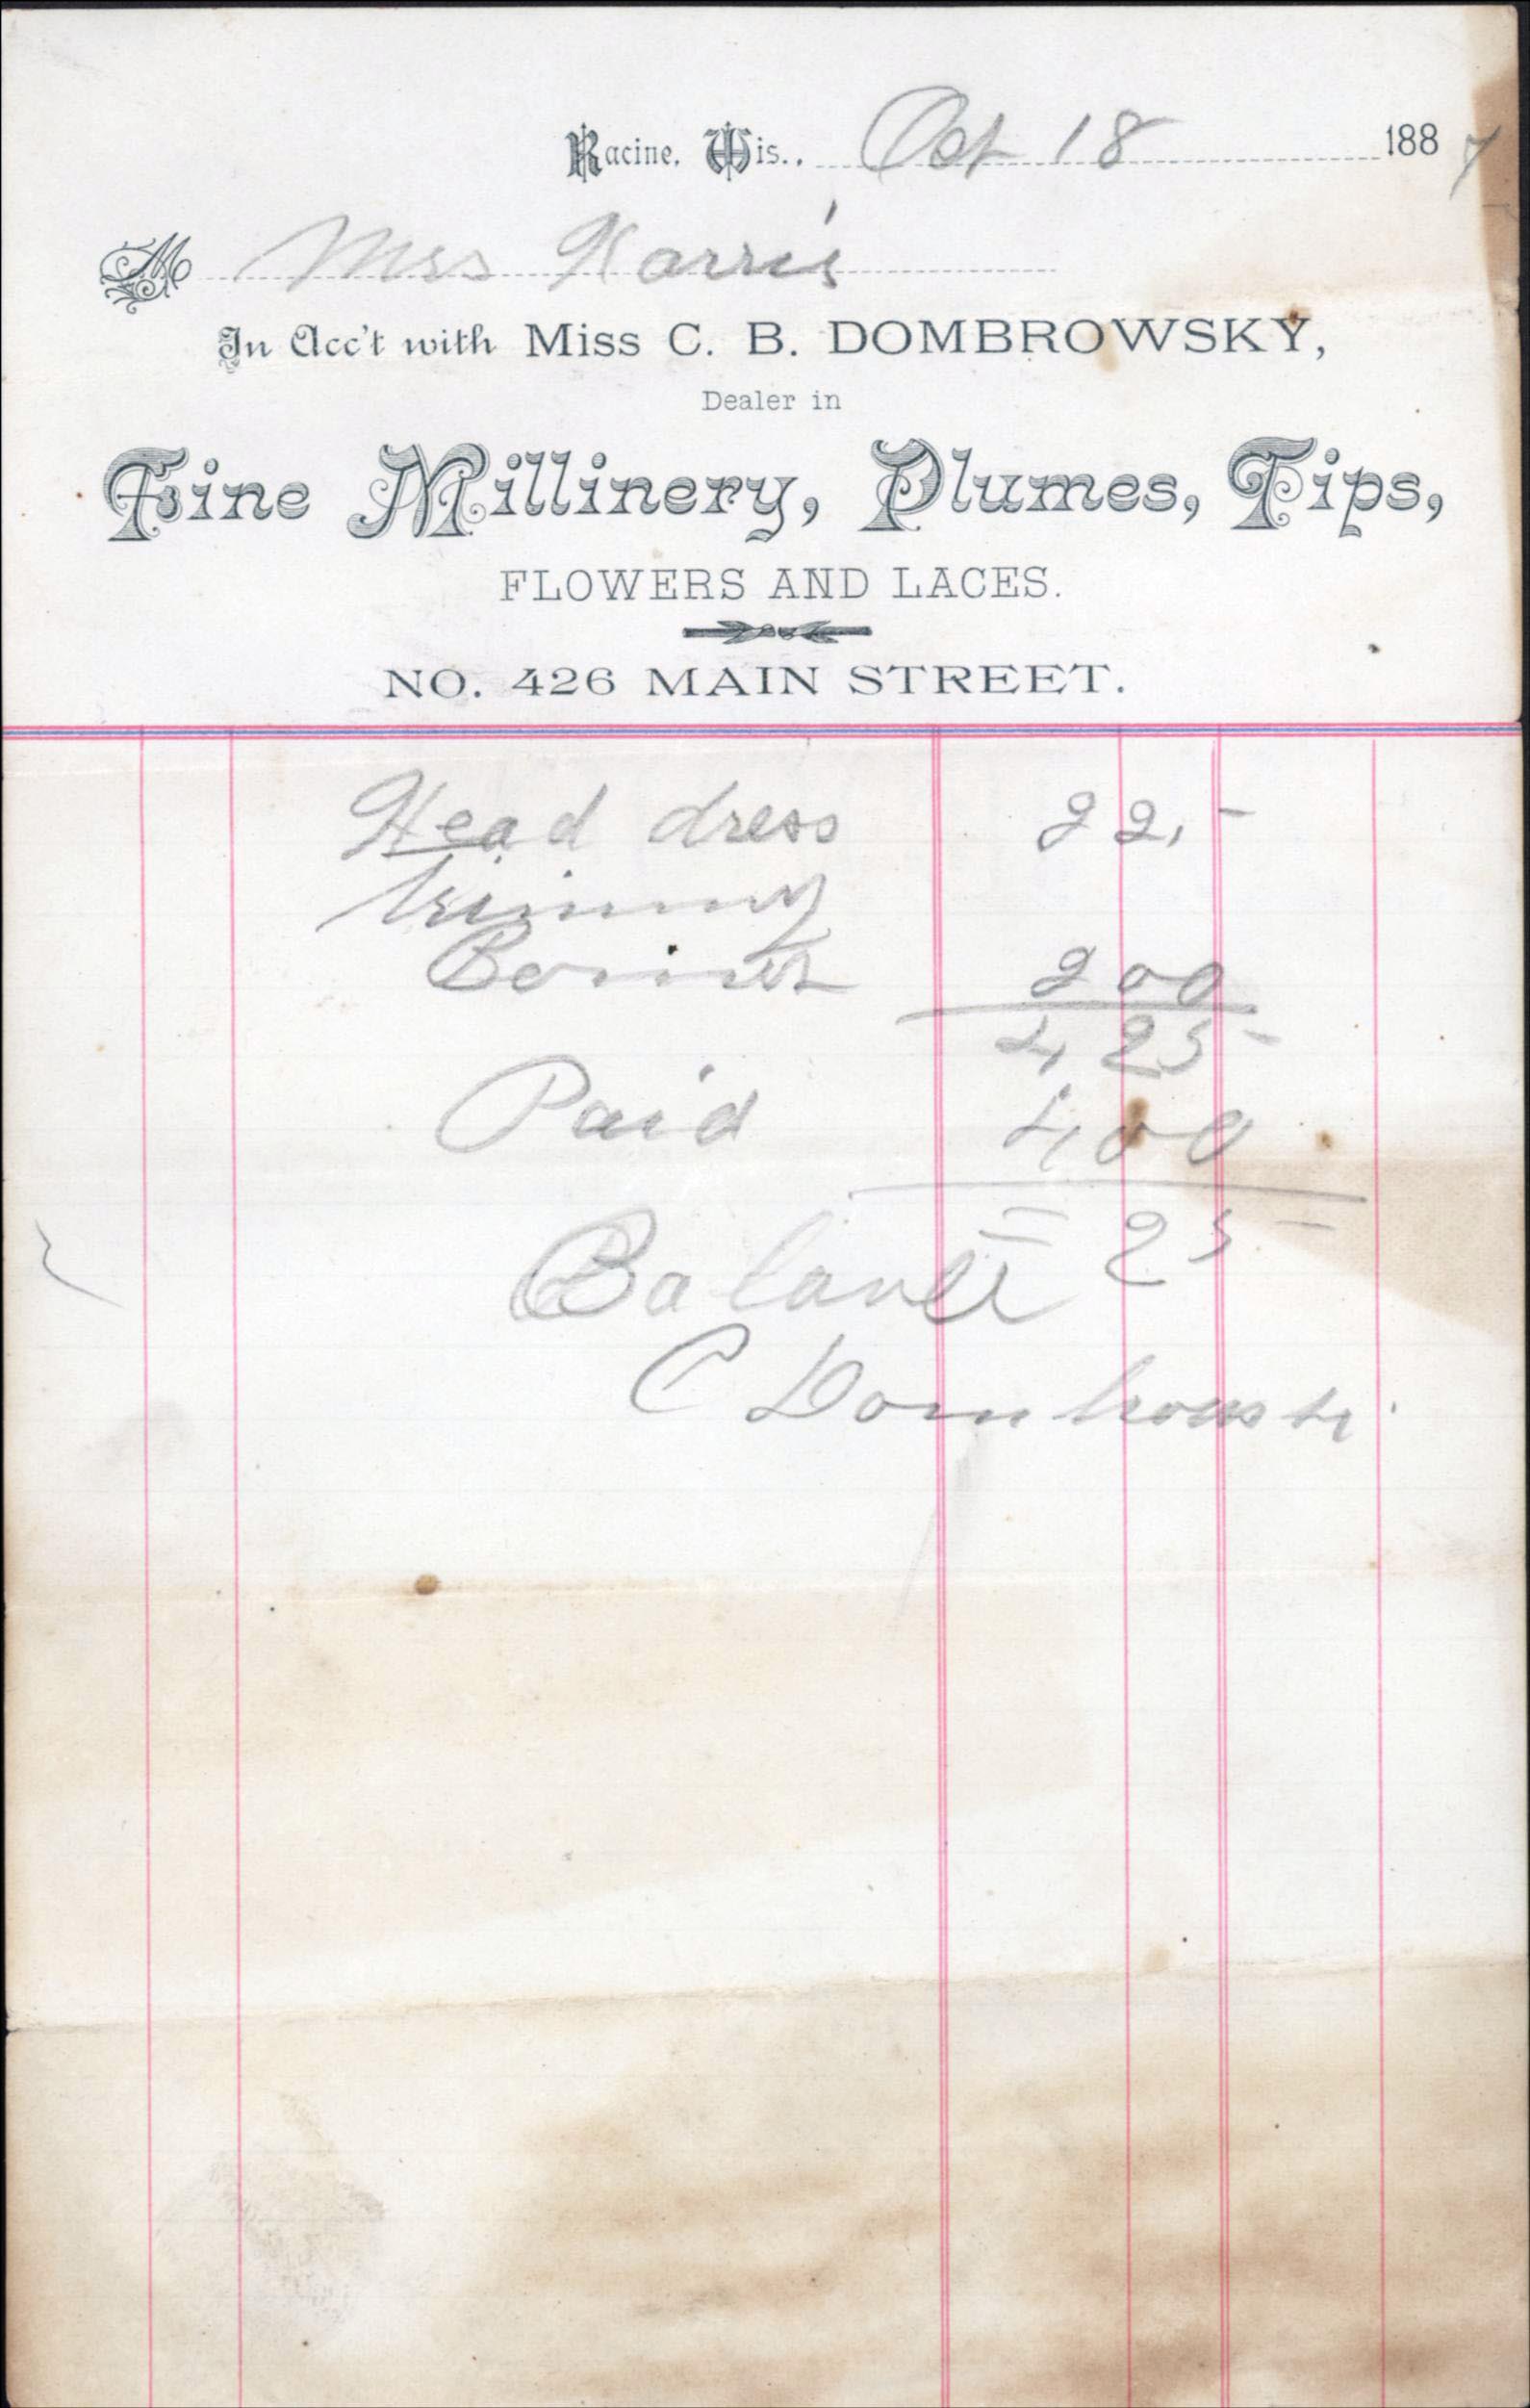 Racine, Wis., Oct 18 1887
M Mrs Harris
In Acc't with Miss C. B. DOMBROWSKY,
Dealer in
Fine Millinery, Plumes, Tips,
FLOWERS AND LACES.
NO. 426 MAIN STREET.
Head dress 22,-
trimming
Bonnet 200
4 25-
Paid 4,00
= 25-
Balance
C Dombrowski